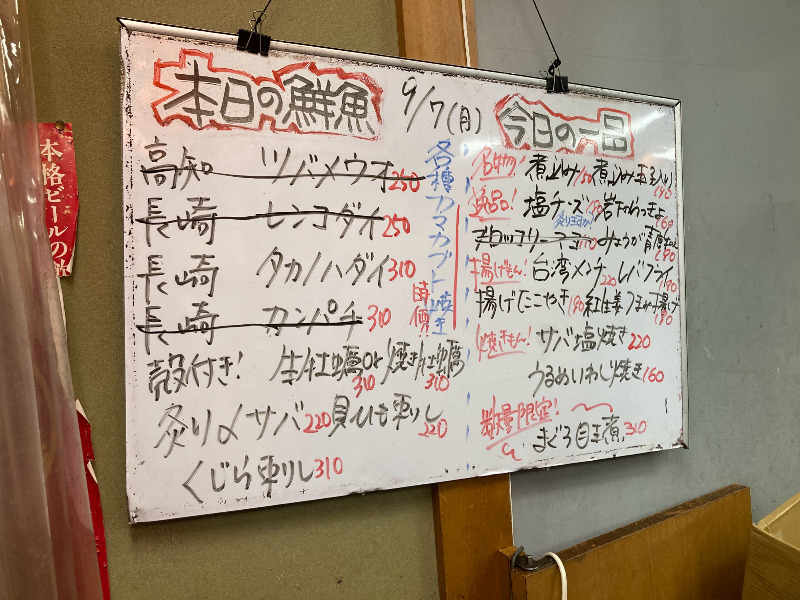 本日の鮮魚
9/7(月)
高知 ツバメウオ 250
長崎 レンコダイ 250
長崎 タカノハダイ 310
長崎 カンパチ 310
殻付き! 生牡蠣or焼き牡蠣 310 310
炙り〆サバ 220 貝ひも刺し 220
くじら刺し 310
各種カマカブト焼き
時価
今日の一品
名物! 煮込み 煮込み玉子入り 190
逸品! 塩チーズ 岩下らっきょ 160
炙りますか?
ブロッコリーマヨ みょうが 190
揚げもん! 台湾メンチ 220 レバフライ 190
揚げたこやき 190 紅生姜 揚げ 190
焼きもん! サバ塩焼き 220
うるめいわし焼き 160
数量限定!
まぐろ目玉煮 310
本格ビールの